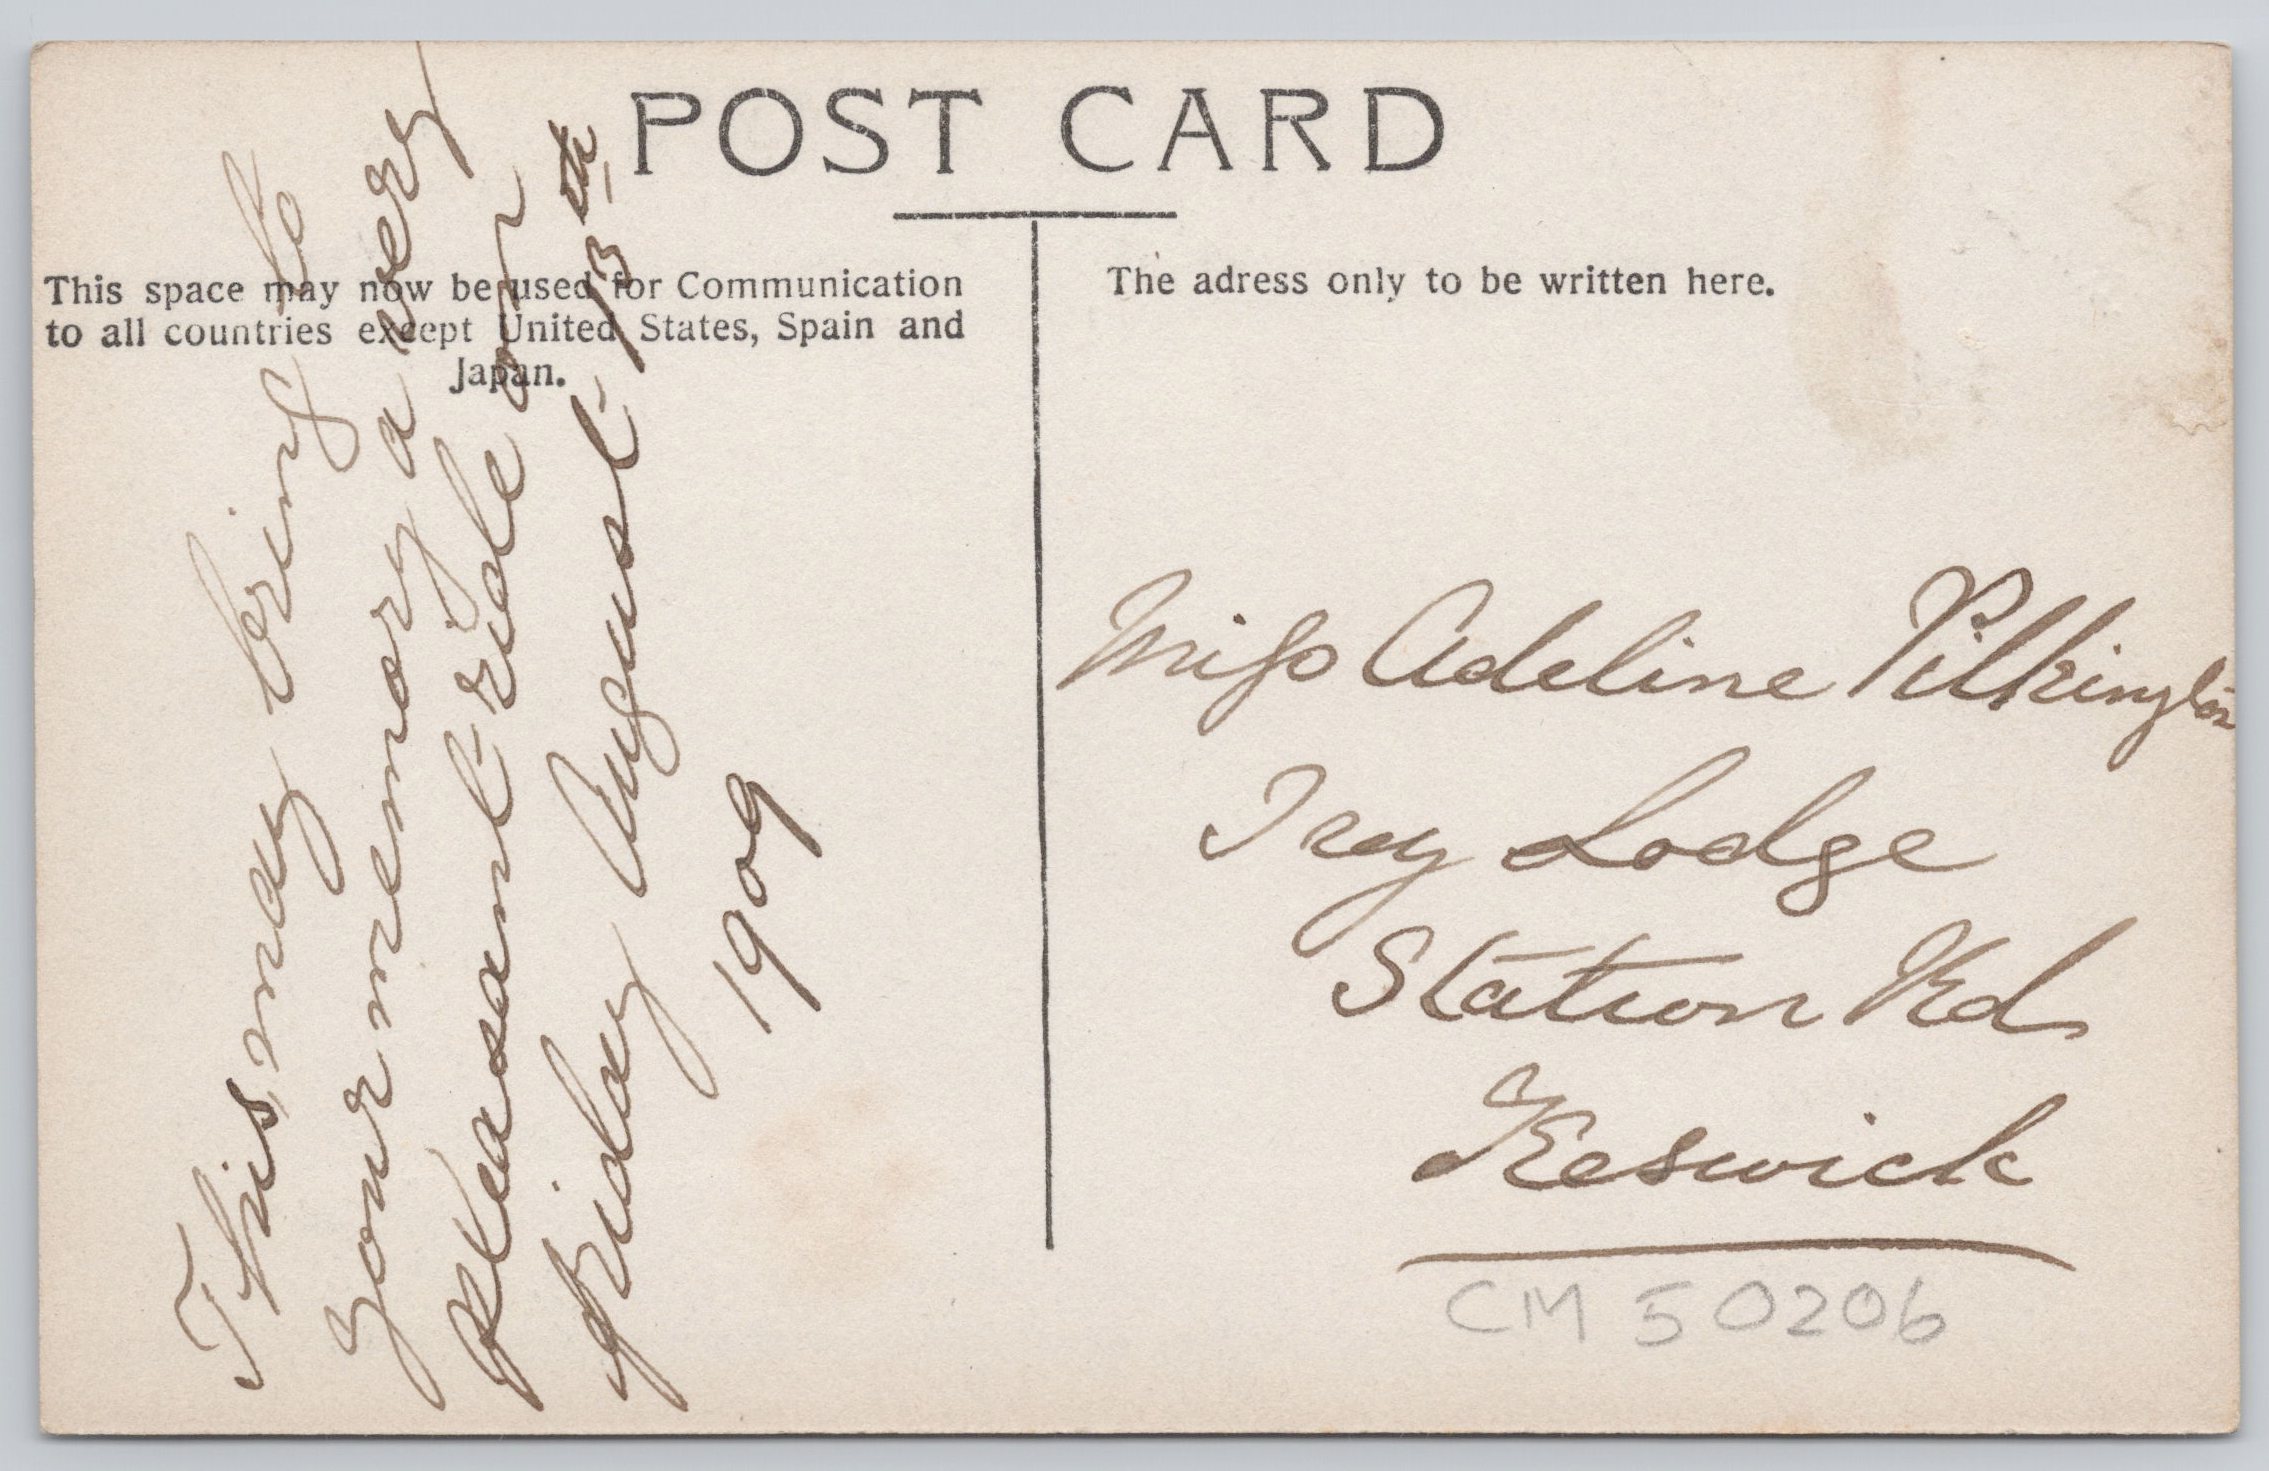 POST CARD
This space may now be used for Communication
to all countries except United States, Spain and
Japan.
The adress only to be written here.
This may bring to
your memory a very
pleasant ride on
Friday August 13th
1909
Miss Adeline Pilkington
Ivy Lodge
Station Rd
Keswick
CM 50206